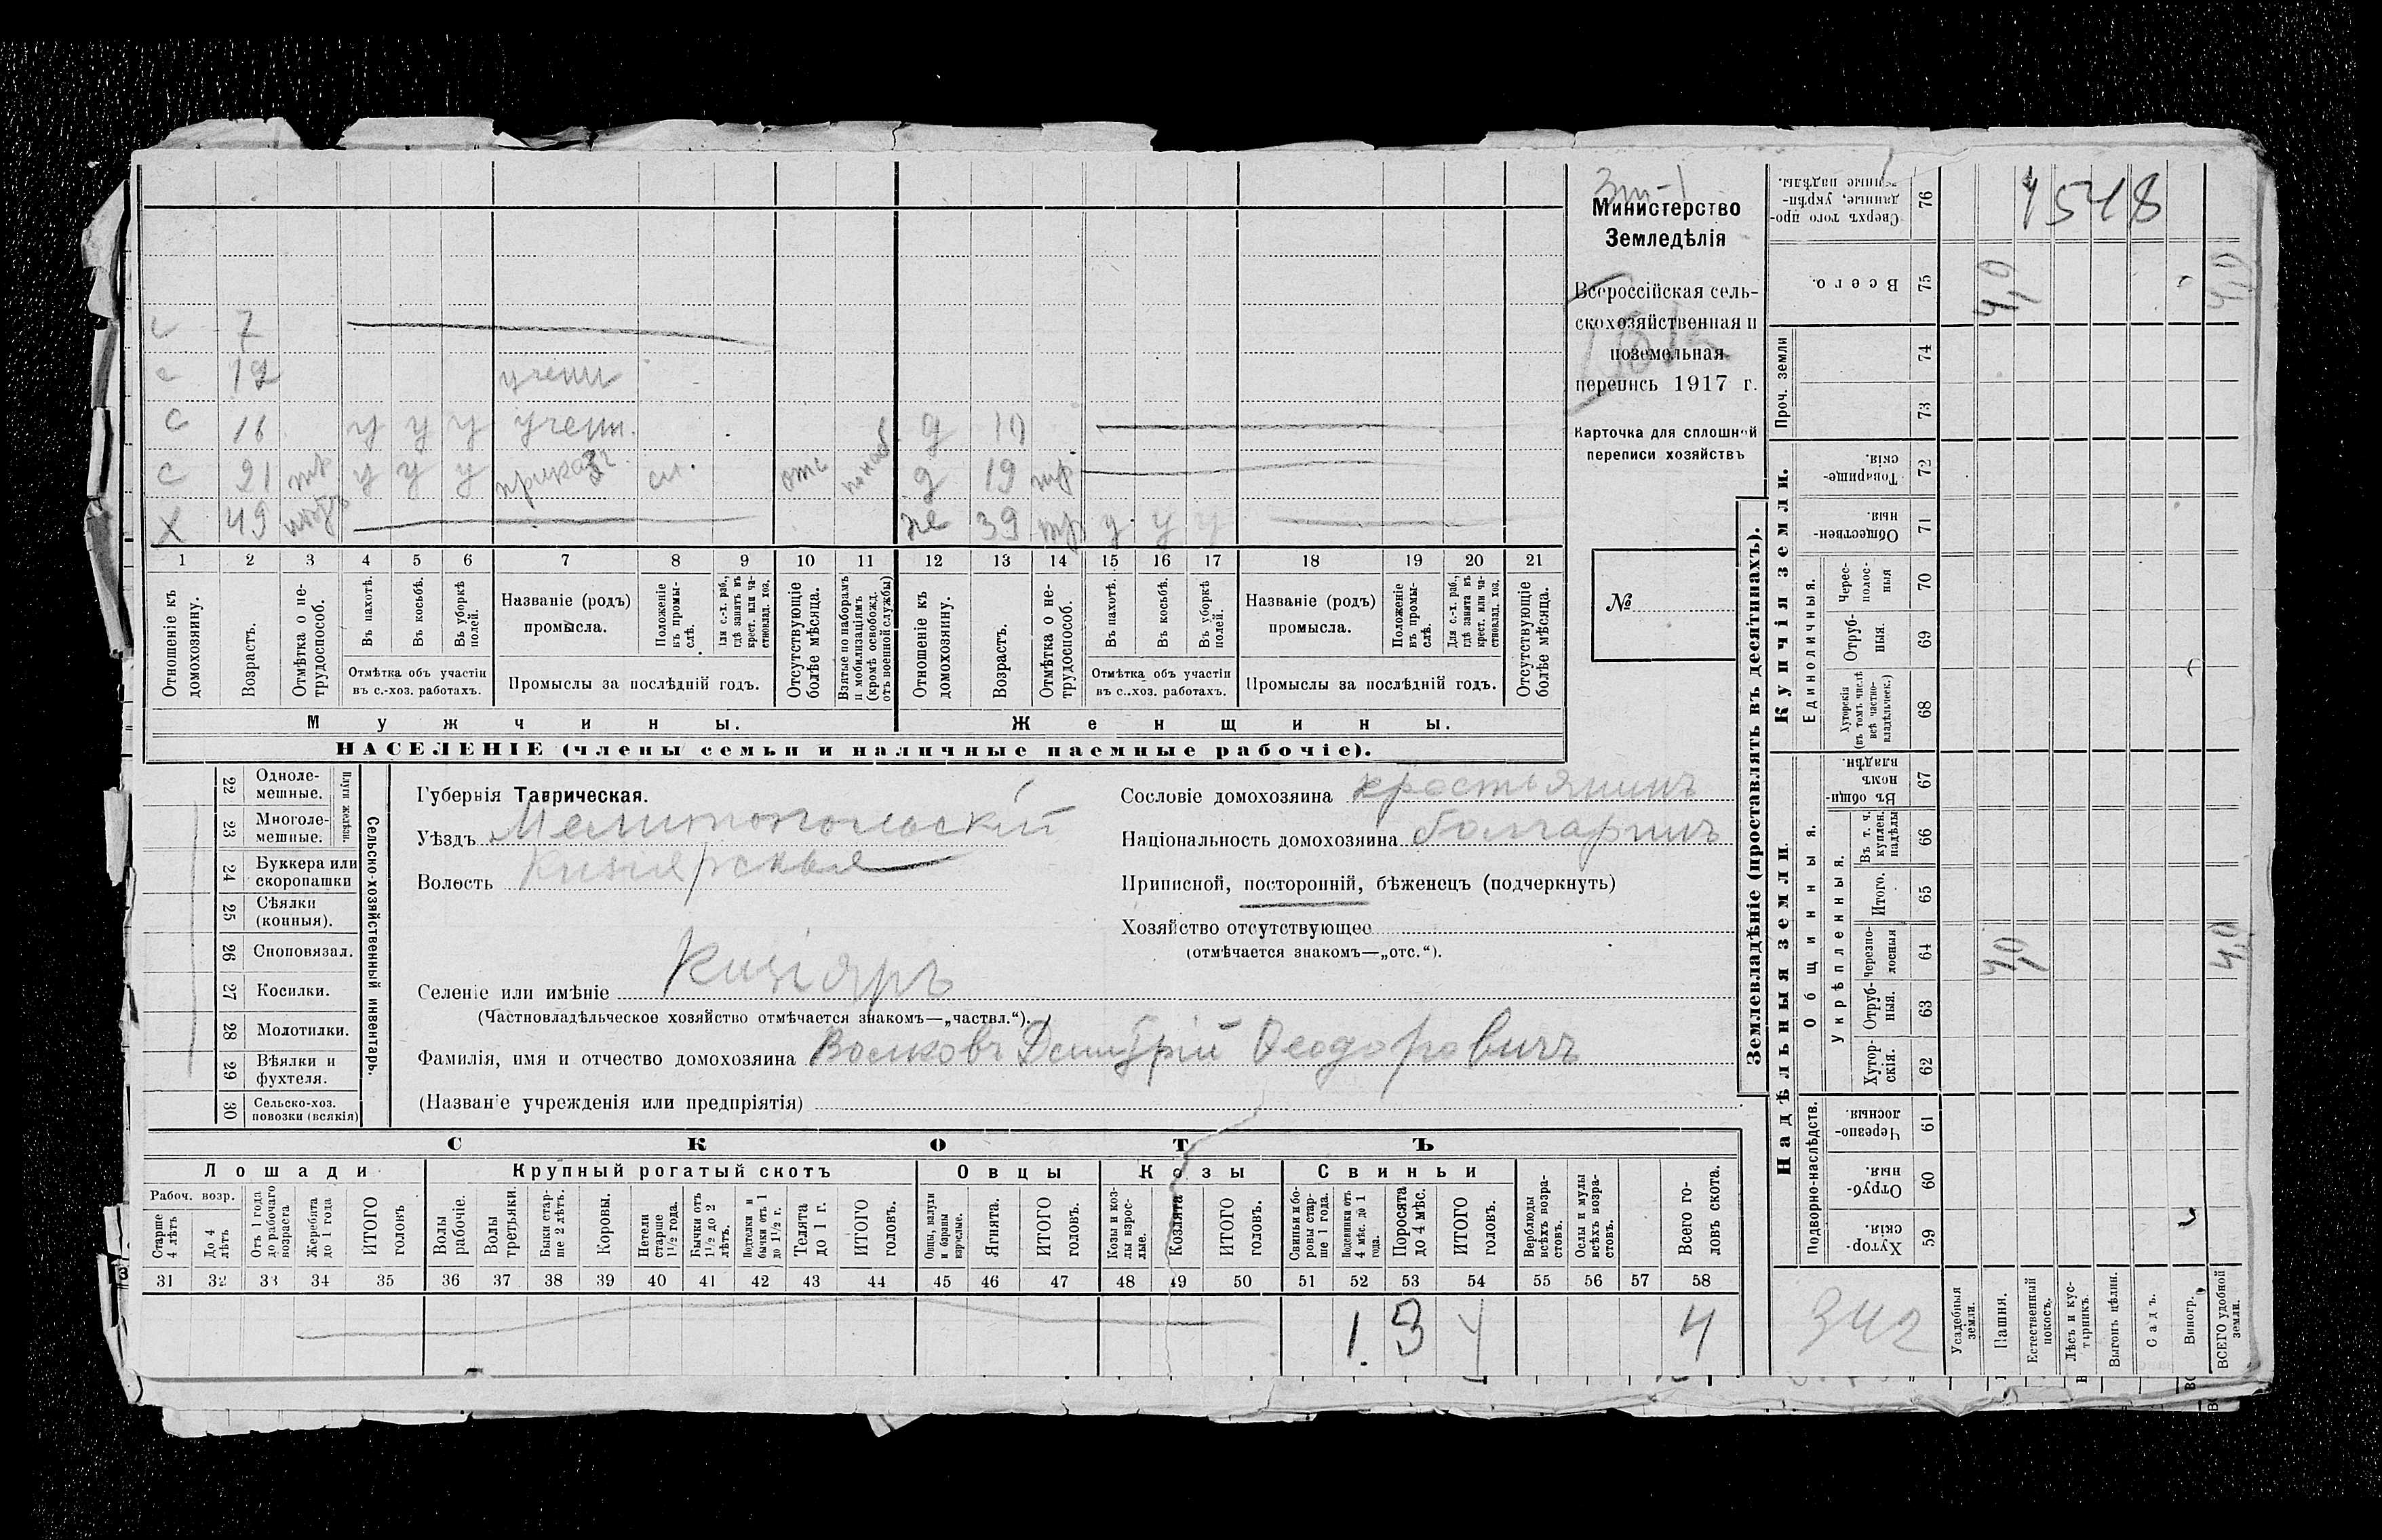 Министерство
Земледѣлія
Всероссійская сель-
скохозяйственная и
поземельная
перепись 1917 г.
Карточка для сплошной
переписи хозяйствъ
№
с 7
с 12 учени
с 16 у у у учени. д 10
с 21 тр у у у приказч сл. отс по наб д 19 тр
х 49 ж 39 тр у у у
1 2 3 4 5 6 7 8 9 10 11 12 13 14 15 16 17 18 19 20 21
Отношеніе къ домохозяину.
Возрастъ.
Отмѣтка о не-трудоспособ.
Въ пахотѣ.
Въ косьбѣ.
Въ уборкѣ полей.
Отмѣтка объ участіи
въ с.-хоз. работахъ.
Названіе (родъ)
промысла.
Положеніе въ промы-слѣ.
Для с.-х. раб., гдѣ занятъ въ крест. или ча-стновлад. хоз.
Промыслы за послѣдній годъ.
Отсутствующіе болѣе мѣсяца.
Взятые по наборамъ и мобилизаціямъ (кромѣ освобожд. отъ военной службы)
Отношеніе къ домохозяину.
Возрастъ.
Отмѣтка о не-трудоспособ.
Въ пахотѣ.
Въ косьбѣ.
Въ уборкѣ полей.
Отмѣтка объ участіи
въ с..хоз. работахъ.
Названіе (родъ)
промысла.
Положеніе въ промы-слѣ.
Для с.-х. раб., гдѣ занята въ крест. или ча-стновлад. хоз.
Промыслы за послѣдній годъ.
Отсутствующіе болѣе мѣсяца.
Мужчины. Женщины.
НАСЕЛЕНІЕ (члены семьи и наличные наемные рабочіе).
Сельско-хозяйственный инвентарь.
Плуги желѣзн.
22 Одноле-мешные.
23 Многоле-мешные.
24 Буккера или скоропашки
25 Сѣялки (конныя).
26 Сноповязал.
27 Косилки.
28 Молотилки.
29 Вѣялки и фухтеля.
30 Сельско-хоз. повозки (всякія)
Губернія Таврическая.
Уѣздъ Мелитопольскій
Волость Кизіярская
Селеніе или имѣніе Кизіяръ
(Частновладѣльческое хозяйство отмѣчается знакомъ—„частвл.“).
Фамилія, имя и отчество домохозяина Волковъ Димитрій Феодоровичъ
(Названіе учрежденія или предпріятія)
Сословіе домохозяина крестьянинъ
Національность домохозяина болгаринъ
Приписной, посторонній, бѣженецъ (подчеркнуть)
Хозяйство отсутствующее
(отмѣчается знакомъ—„отс.“).
СКОТЪ
Лошади Крупный рогатый скотъ Овцы Козы Свиньи
Рабоч. возр.
Старше 4 лѣтъ
До 4 лѣтъ
Отъ 1 года до рабочаго возраста
Жеребята до 1 года
ИТОГО головъ
Волы рабочіе.
Волы третьяки.
Быки стар-ше 2 лѣтъ.
Коровы.
Нетели старше 1½ года.
Бычки отъ 1½ до 2 лѣтъ.
Подтелки и бычки отъ 1 до 1½ г.
Телята до 1 г.
ИТОГО головъ.
Овцы, валухи и бараны взрослые.
Ягнята.
ИТОГО головъ.
Козы и коз-лы взрос-лые.
Козлята
ИТОГО головъ.
Свиньи и бо-ровы стар-ше 1 года.
Подсвинки отъ 4 мѣс. до 1 года.
Поросята до 4 мѣс.
ИТОГО головъ.
Верблюды всѣхъ возра-стовъ.
Ослы и мулы всѣхъ возра-стовъ.
Всего го-ловъ скота.
31 32 33 34 35 36 37 38 39 40 41 42 43 44 45 46 47 48 49 50 51 52 53 54 55 56 57 58
1 3 4 4
Землевладѣніе (проставлять въ десятинахъ).
Купчія земли.
Надѣльныя земли
76 Сверхъ того про-данные, укрѣп-ленные надѣлы.
75 Всего.
Проч. земли
74
73
72 Товарище-скія.
71 Обществен-ныя.
Единоличныя.
70 Черес-полос-ныя
69 Отруб-ныя.
68 Хуторскія (въ томъ числѣ всѣ частно-владѣльческ.)
Общинныя.
67 Въ общин-номъ владѣн.
Укрѣпленныя.
66 Въ т. ч. куплен. надѣлы
65 Итого.
64 Черезпо-лосныя
63 Отруб-ныя.
62 Хутор-скія.
Подворно-наслѣдств.
61 Черезпо-лосныя.
60 Отруб-ныя.
59 Хутор-скія.
1548
4,0 4,0
4,0 4,0
342
Усадебныя земли.
Пашня.
Естественный покосъ.
Лѣсъ и кус-тарникъ.
Выгонъ цѣлин.
Садъ.
Виногр.
ВСЕГО удобной земли.